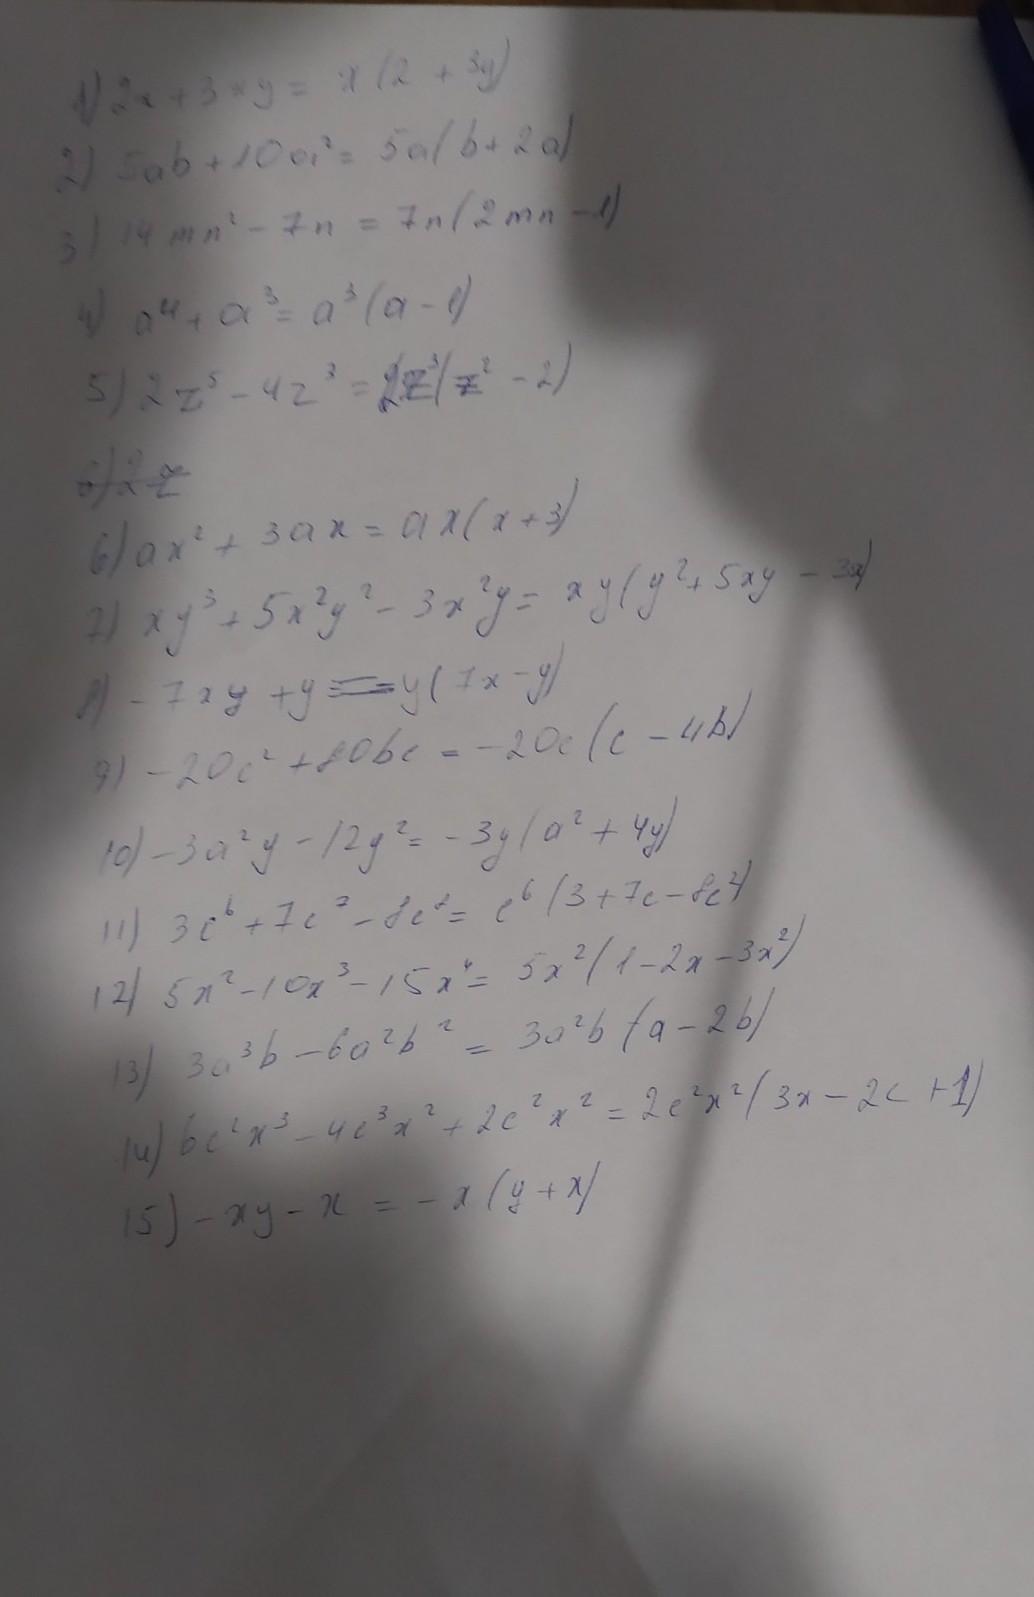 1) 2x + 3xy = x(2 + 3y)
2) 5ab + 10a² = 5a(b + 2a)
3) 14mn² - 7n = 7n(2mn - 1)
4) a⁴ + a³ = a³(a - 1)
5) 2z⁵ - 4z³ = 2z³(z² - 2)
6) 2z
6) ax² + 3ax = ax(x + 3)
7) xy³ + 5x²y² - 3x²y = xy(y² + 5xy - 3x)
8) - 7xy + y = - y(7x - y)
9) - 20c² + 80bc = - 20c(c - 4b)
10) - 3a²y - 12y² = - 3y(a² + 4y)
11) 3c⁶ + 7c⁷ - 8c⁸ = c⁶(3 + 7c - 8c²)
12) 5x² - 10x³ - 15x⁴ = 5x²(1 - 2x - 3x²)
13) 3a³b - 6a²b² = 3a²b(a - 2b)
14) 6c²x³ - 4c³x² + 2c²x² = 2c²x²(3x - 2c + 1)
15) - xy - x = - x(y + x)